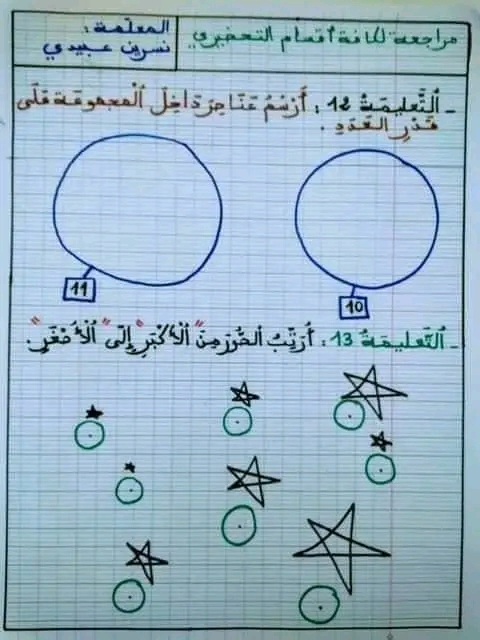 مراجعة لكافة أقسام التحضيري
المعلمة :
نسرين عبيدي
- التَّعليمَةُ 12 : أَرْسُمُ عَنَاصِرَ دَاخِلَ الْمَجموعَةِ عَلَى
قَدْرِ العَدَدِ .
11
10
- التَّعليمَةُ 13 : أُرَتِّبُ الصُّوَرَ مِنَ "الْأَكْبَرِ" إِلَى "الْأَصْغَرِ".